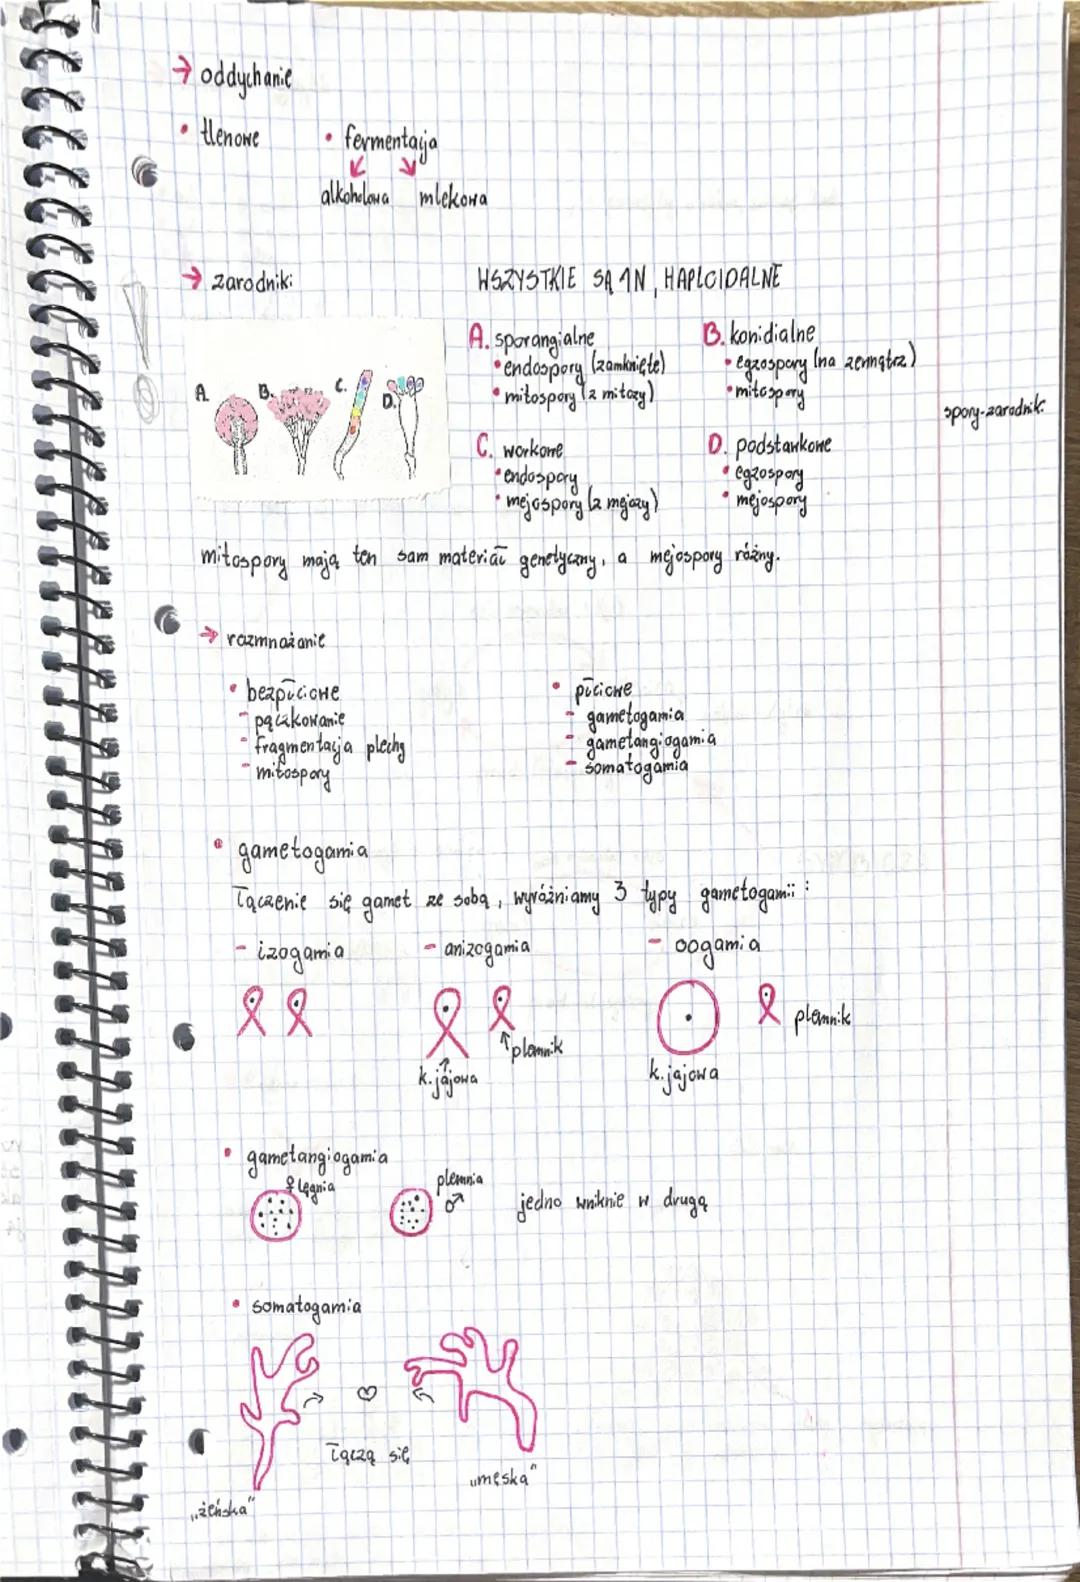 → oddychanie
• tlenowe • fermentacja
alkoholowa mlekowa
→ zarodniki
WSZYSTKIE SĄ 1N, HAPLOIDALNE
A. B. C. D.
A. sporangialne
• endospory (zamknięte)
• mitospory (z mitozy)
B. konidialne
• egzospory (na zewnątrz)
• mitospory
spory-zarodniki
C. workowe
• endospory
• mejospory (z mejozy)
D. podstawkowe
• egzospory
• mejospory
mitospory mają ten sam materiał genetyczny, a mejospory różny.
→ rozmnażanie
• bezpłciowe
- pączkowanie
- fragmentacja plechy
- mitospory
• płciowe
- gametogamia
- gametangiogamia
- somatogamia
• gametogamia
łączenie się gamet ze sobą, wyróżniamy 3 typy gametogamii:
- izogamia - anizogamia - oogamia
k. jajowa
↑ plemnik
k. jajowa
plemnik
• gametangiogamia
♀ lęgnia
plemnia
♂
jedno wniknie w drugą
• somatogamia
łączą się
„żeńska”
„męska”